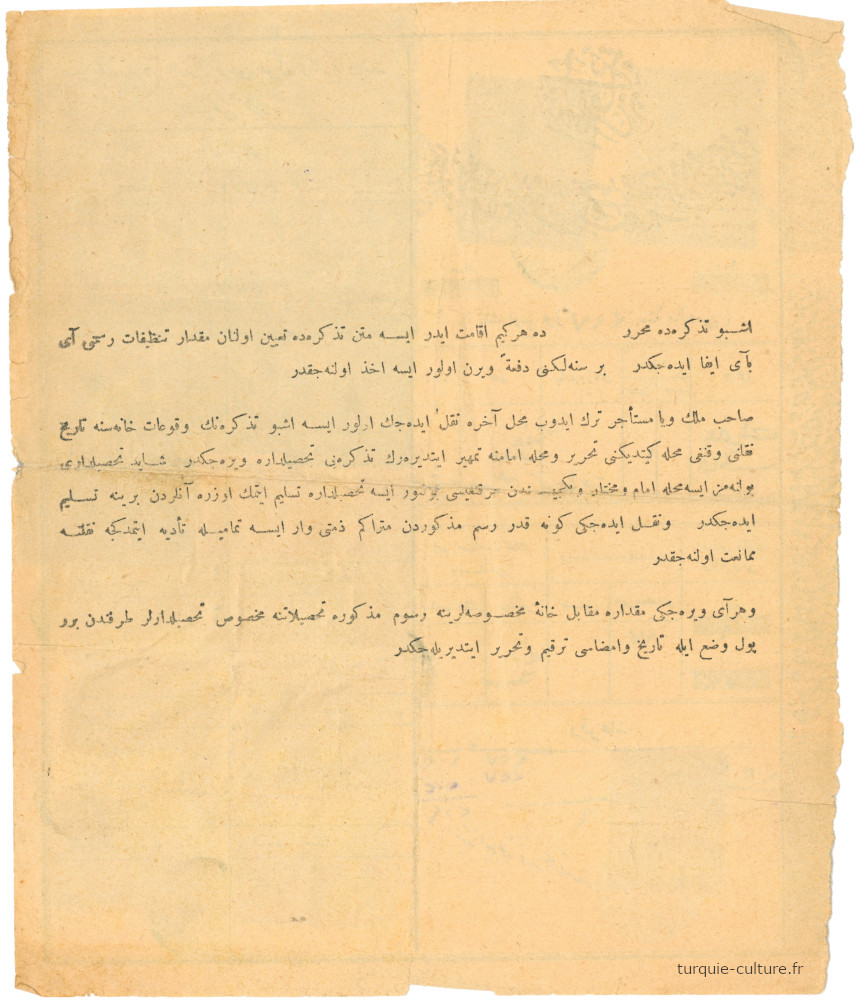 اشبو تذكره‌ده محرر ده هركيم اقامت ايدر ايسه متن تذكره‌ده تعيين اولنان مقدار تنظيفات رسمنى آى
بآى ايفا ايده‌جكدر بر سنه‌لكنى دفعةً ويرن اولور ايسه اخذ اولنه‌جقدر
صاحب ملك ويا مستأجر ترك ايدوب محل آخره نقل ايده‌جك اولور ايسه اشبو تذكره‌نك وقوعات خانه‌سنه تاريخ
نقلنى وقنغى محله كيتديكنى تحرير ومحله امامنه تمهير ايتديره‌رك تذكره‌يى تحصيلداره ويره‌جكدر شايد تحصيلدارى
بوله‌مز ايسه محله امام ومختار وبكجيسندن قنغيسى بولنور ايسه تحصيلداره تسليم ايتمك اوزره آنلردن برينه تسليم
ايده‌جكدر ونقل ايده‌جكى كونه قدر رسم مذكوردن متراكم ذمتى وار ايسه تماميله تأديه ايتمدكجه نقلنه
ممانعت اولنه‌جقدر
وهر آى ويره‌جكى مقداره مقابل خانهٔ مخصوصه‌لرينه رسوم مذكوره تحصيلاتنه مخصوص تحصيلدارلر طرفندن برر
پول وضع ايله تاريخ وامضاسى ترقيم وتحرير ايتديريله‌جكدر
turquie-culture.fr